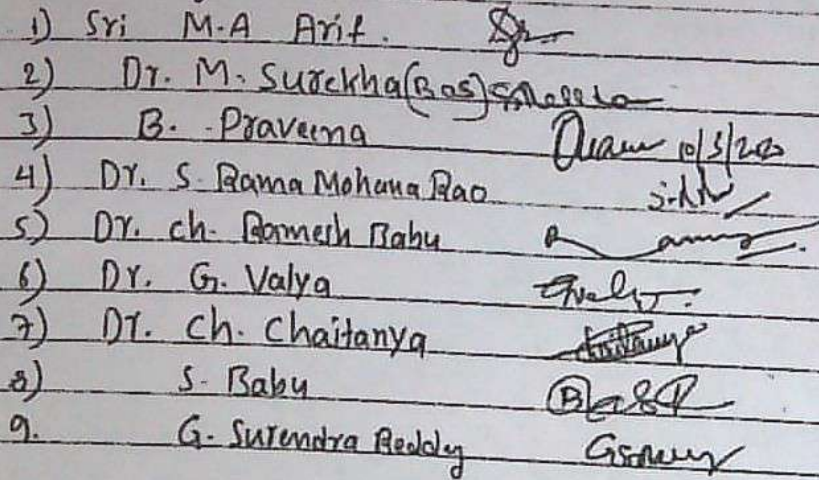 1) Sri M.A Arif.
2) Dr. M. Surekha(BOS)
3) B. Praveena 10/3/2020
4) Dr. S. Rama Mohana Rao
5) Dr. ch. Ramesh Babu
6) Dr. G. Valya
7) Dr. Ch. Chaitanya
8) S. Babu
9. G. Surendra Reddy